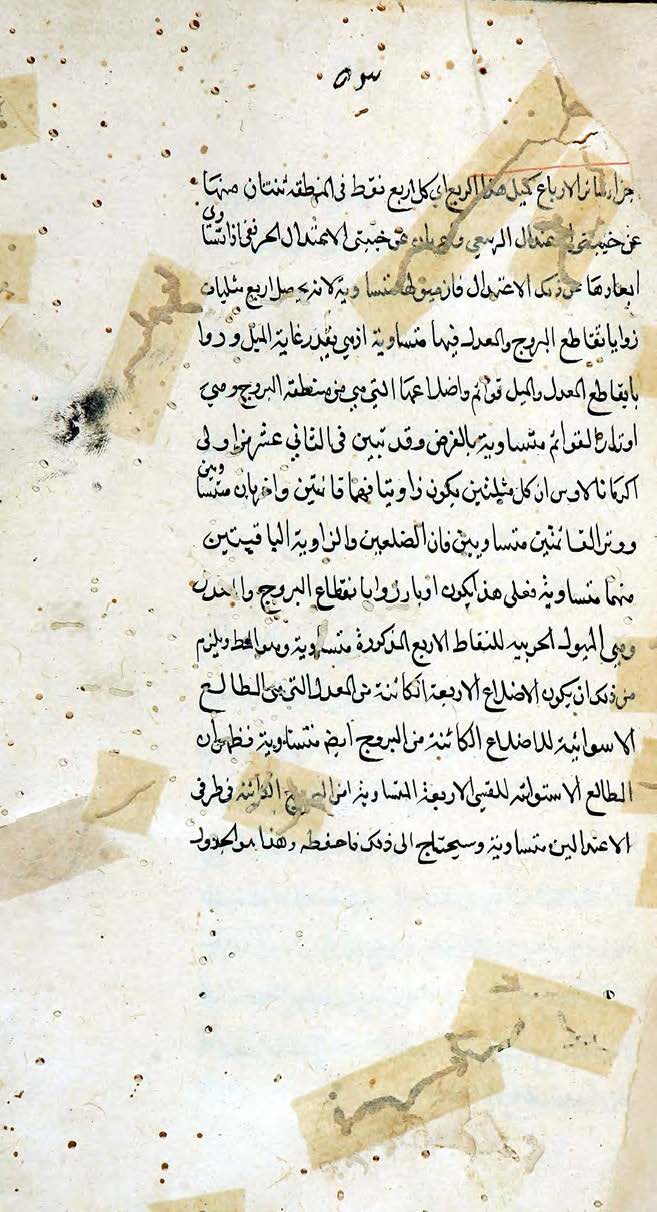 سره
سائر الارباع كميل هذا الربع اي كل اربع نقط فى المنطقة ثنتان منها
عن جنبتى الاعتدال الربيعى واخريان عن جنبتى الاعتدال الخريفى اذا تساوى
ابعادها عن ذلك الاعتدال فان ميولها متساوية لانه يحصل اربع مثلثات
زوايا تقاطع البروج والمعدل فيها متساوية اذ هى بقدر غاية الميل وزوايا
تقاطع المعدل والميل قوائم واضلاعها التى هى من منطقة البروج وهى
اوتار القوائم متساوية بالفرض وقد تبين فى الثانى عشر من اولى
اكر مانالاوس ان كل مثلثين يكون زاويتا فهما قائمتين واخريان متساويتين
ووتر القائمتين متساويين فان الضلعين والزاوية الباقيتين
منهما متساوية فعلى هذا يكون اوتار زوايا تقطاع البروج والمعدل
وهى الميول الجزئية للنقاط الاربع المذكورة متساوية وهو المط ويلزم
من ذلك ان يكون الاضلاع الاربعة الكائنة من المعدل التى هى المطالع
الاسوائية للاضلاع الكائنة من البروج ايضا متساوية فظهر ان
المطالع الاستوائية للقسى الاربعة المتساوية من البروج الكائنة فى طرفى
الاعتدالين متساوية وسيحتاج الى ذلك فاحفظه وهذا هو الجدول